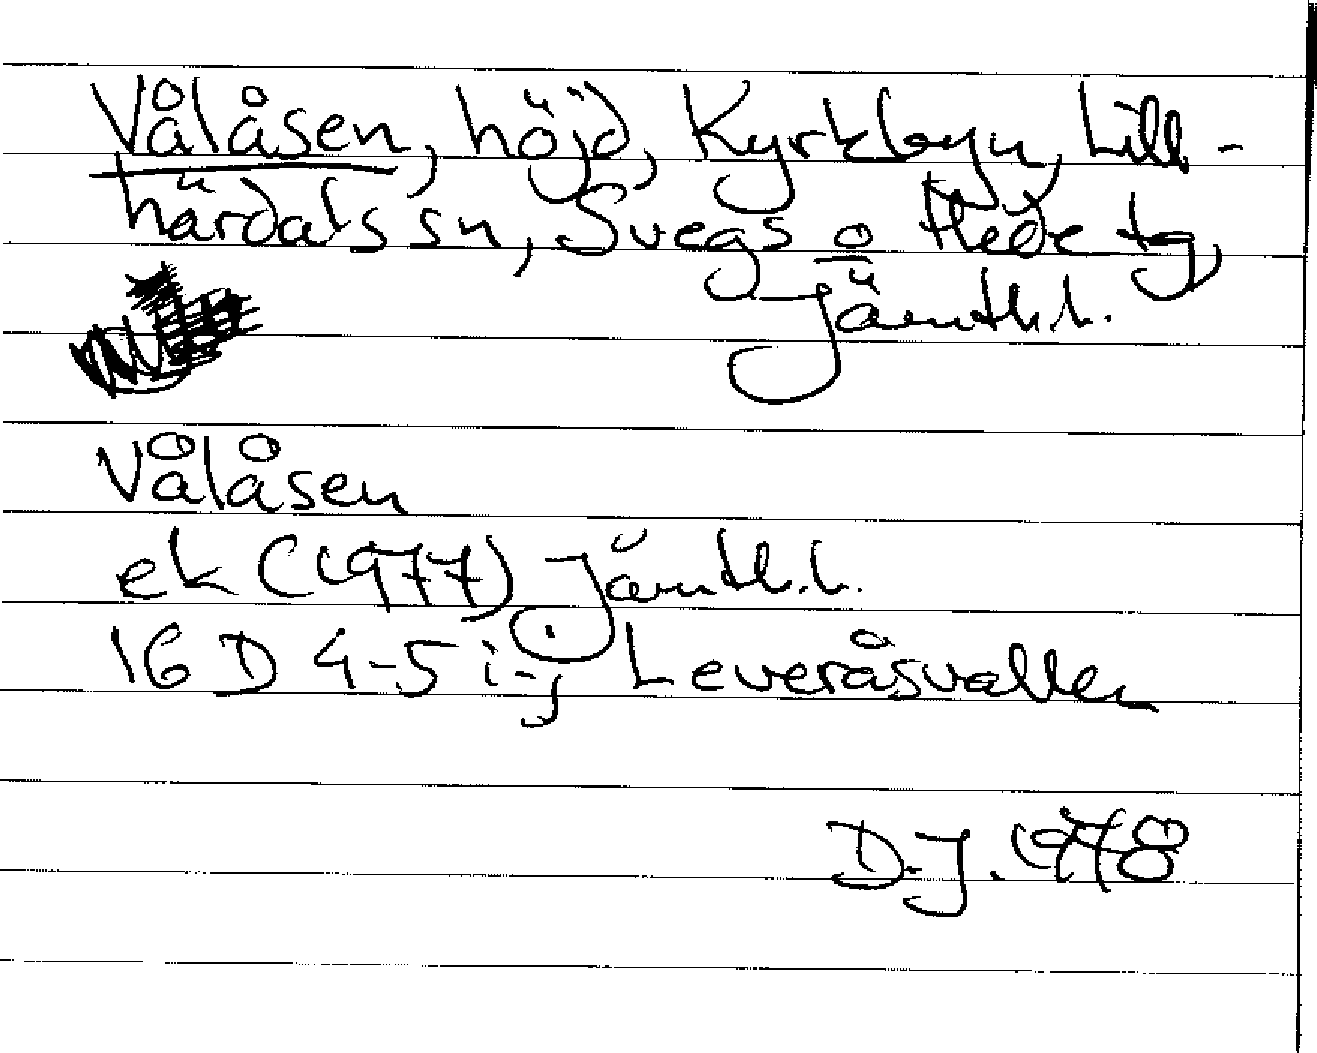 Vålåsen, höjd, Kyrkbyn, Lill-
härdals sn, Svegs o Hede tg,
Jämtl.l.
Vålåsen
ek (1977) Jämtl.l.
16 D 4-5 i-j Leveråsvallen
D.J. 1978